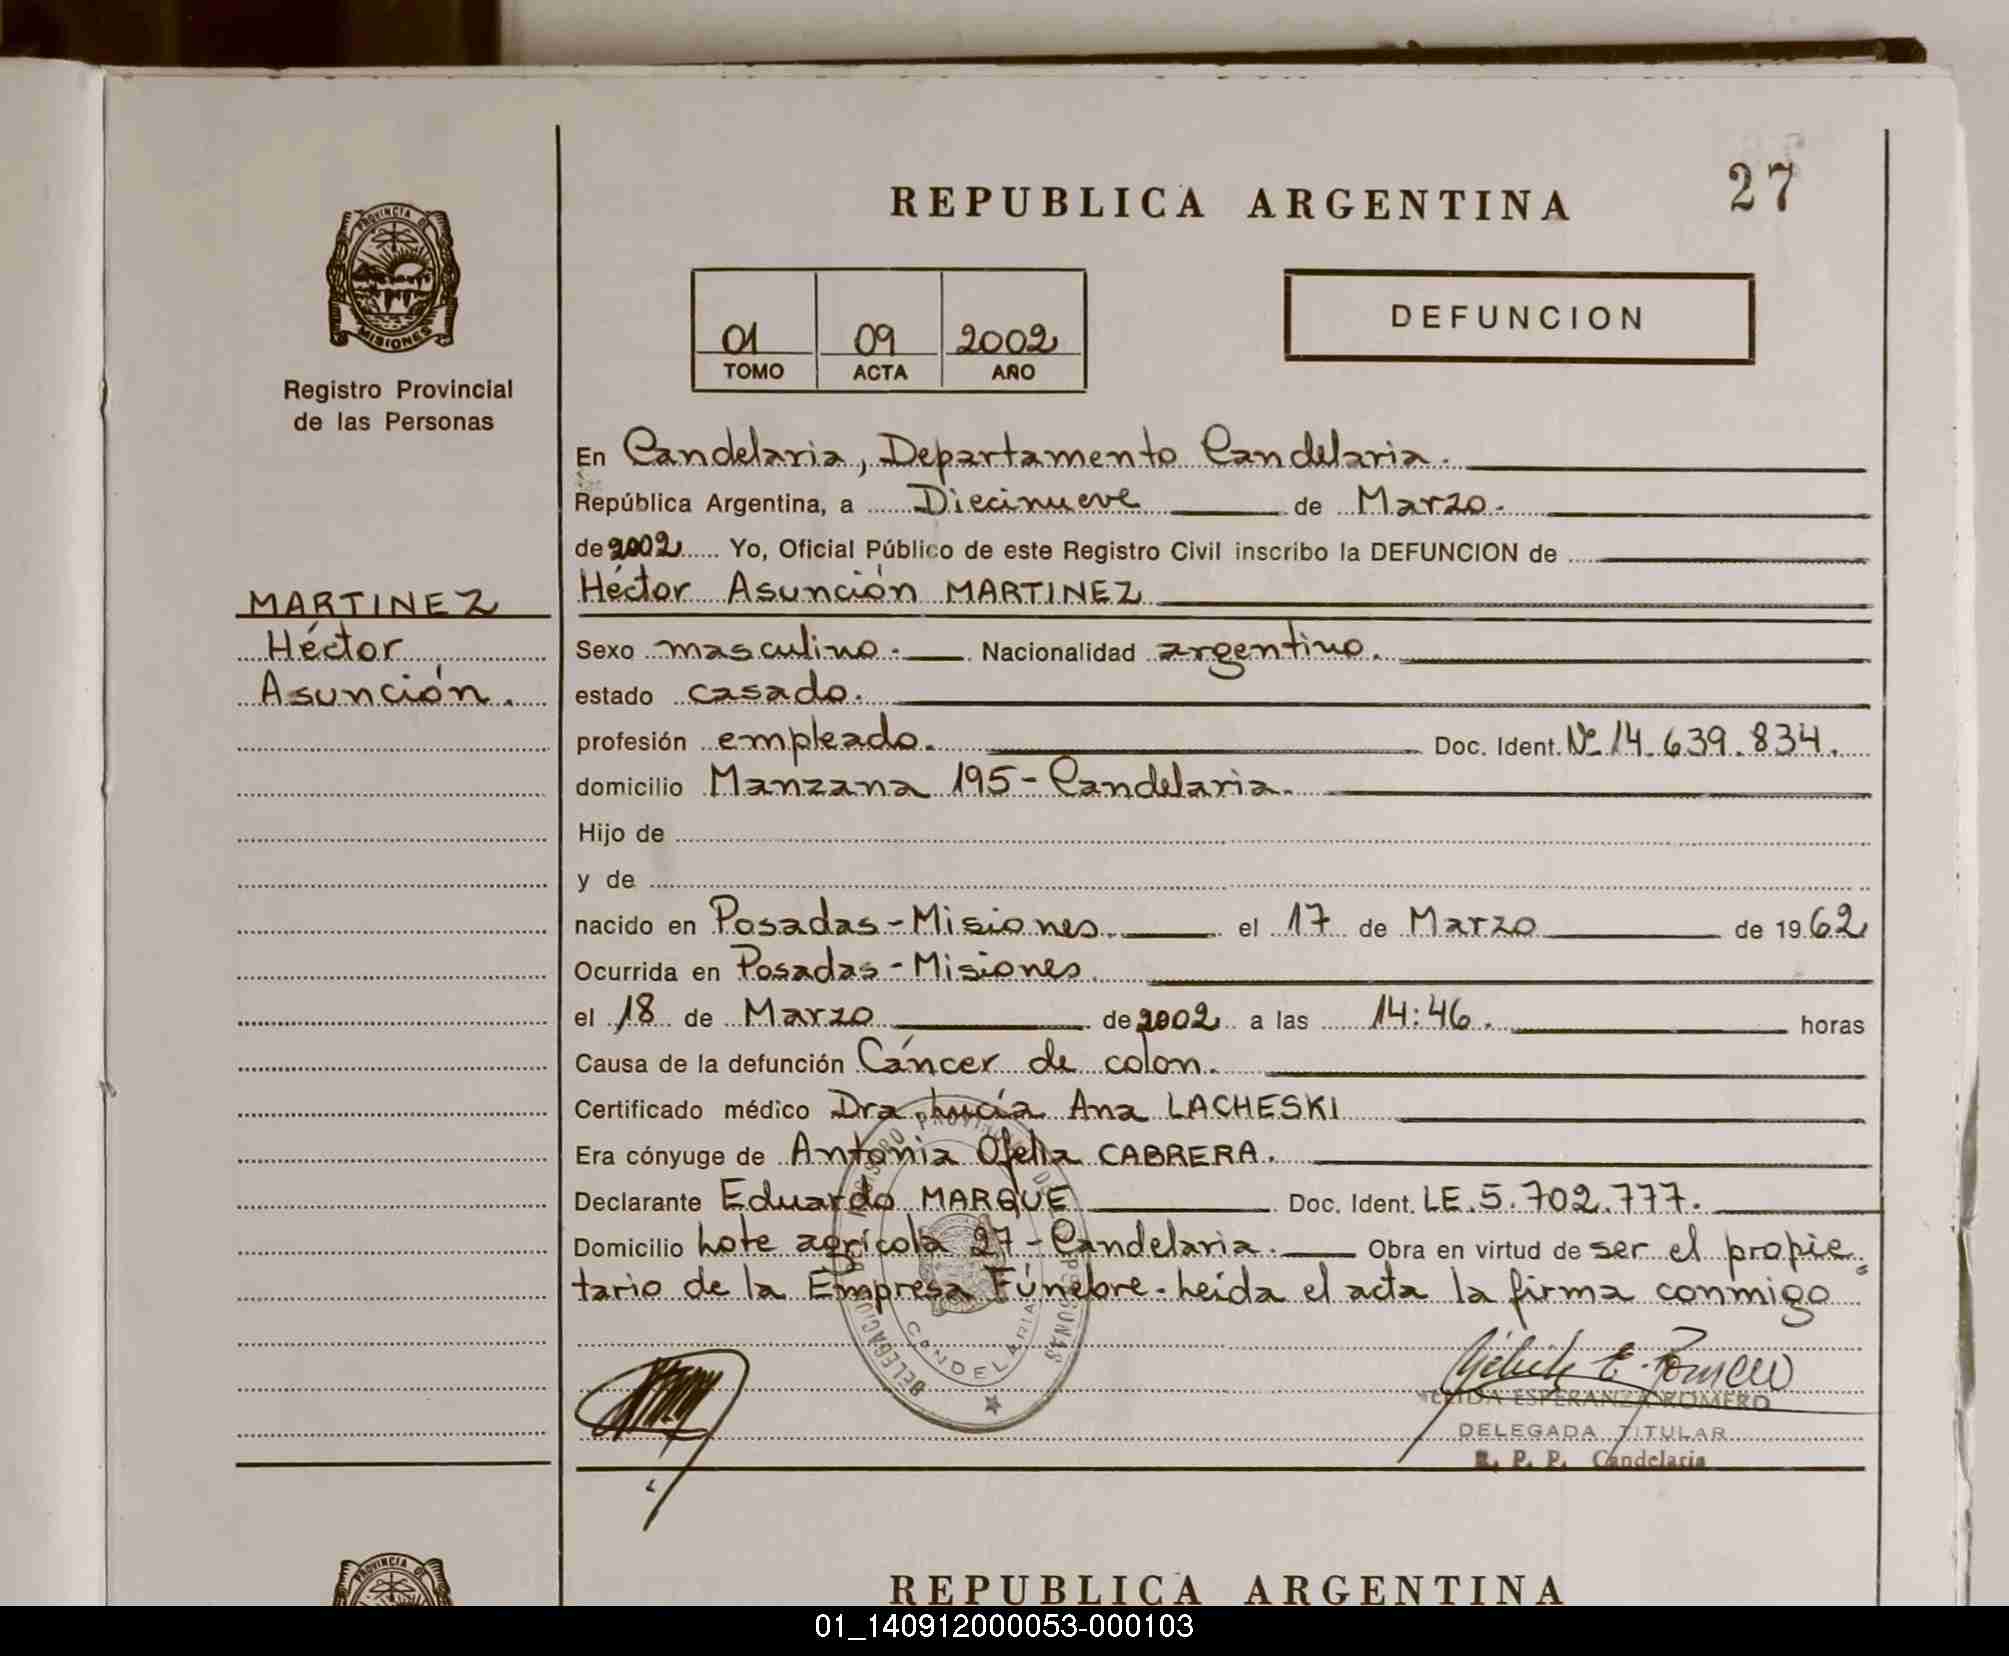 27
REPUBLICA ARGENTINA
PROVINCIA DE
MISIONES
Registro Provincial
de las Personas
01 09 2002
TOMO ACTA AÑO
DEFUNCION
En Candelaria, Departamento Candelaria.
República Argentina, a Diecinueve de Marzo.
de 2002 Yo, Oficial Público de este Registro Civil inscribo la DEFUNCION de
Héctor Asunción MARTINEZ
MARTINEZ
Héctor
Asunción.
Sexo masculino. Nacionalidad argentino.
estado casado.
profesión empleado. Doc. Ident. Nº 14.639.834.
domicilio Manzana 195 - Candelaria.
Hijo de
y de
nacido en Posadas - Misiones. el 17 de Marzo de 1962
Ocurrida en Posadas - Misiones.
el 18 de Marzo de 2002 a las 14:46. horas
Causa de la defunción Cáncer de colon.
Certificado médico Dra. Lucía Ana LACHESKI
Era cónyuge de Antonia Ofelia CABRERA.
Declarante Eduardo MARQUE Doc. Ident. LE.5.702.777.
Domicilio Lote agrícola 27 - Candelaria. Obra en virtud de ser el propie
tario de la Empresa Fúnebre. Leida el acta la firma conmigo
CANDELARIA
ESPERANZA ROMERO
DELEGADA TITULAR
R. P. P. Candelaria
PROVINCIA DE
REPUBLICA ARGENTINA
01_140912000053-000103